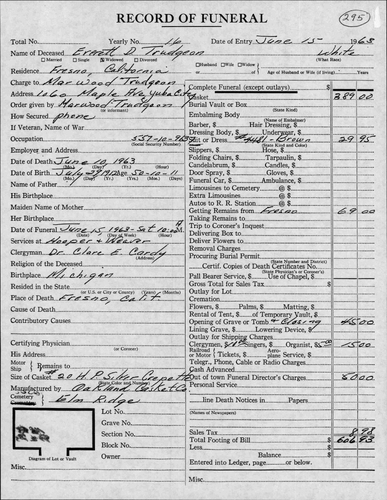 RECORD OF FUNERAL
295
Total No. Yearly No. 16 Date of Entry June 15 1963
Name of Deceased Ernest D Trudgeon White
Married Single Widowed Divorced Husband Wife Widow (What Race)
Residence Fresno, California or Age of Husband or Wife (if living) Years
Charge to Marwood Trudgeon
Address 1160 Maple Ave Yuba City
Order given by Marwood Trudgeon
How Secured phone
If Veteran, War of
Occupation
Employer and Address
Date of Death June 10, 1963
Date of Birth
Name of Father
His Birthplace
Maiden Name of Mother
Her Birthplace
Date of Funeral June 15 1963
Services at Hooper & Weaver
Clergyman Dr. Clare E. Cordy
Religion of the Deceased
Birthplace Michigan
Resided in the State
Place of Death Fresno, Calif
Cause of Death
Contributory Causes
Certifying Physician
His Address
Remains to
Size of Casket
Manufactured by Oakland Casket Co
Cemetery Elm Ridge
Lot No.
Grave No.
Section No.
Block No.
Owner
Diagram of Lot or Vault
Misc.
Complete Funeral (except outlays) $ 289.00
Burial Vault or Box
(State Kind)
Embalming Body
(Name of Embalmer)
Barber, $ Hair Dressing, $
Dressing Body, $ Underwear, $
Suit or Dress Brown 29.95
(State Kind and Color)
Slippers, $ Hose, $
Folding Chairs, $ Tarpaulin, $
Candelabrum, $ Candles, $
Door Spray, $ Gloves, $
Funeral Car, $ Ambulance, $
Limousines to Cemetery @ $
Extra Limousines @ $
Autos to R. R. Station @ $
Getting Remains from Fresno 69.00
Taking Remains to
Trip to Coroner's Inquest
Delivering Box to
Deliver Flowers to
Removal Charges
Procuring Burial Permit
(State Number and District)
Certif. Copies of Death Certificates No.
(State Physician's or Coroner's)
Pall Bearer Service, $ Use of Chapel, $
Gross Total for Sales Tax $
Outlay for Lot
Cremation
Flowers, $ Palms, $ Matting, $
Rental of Tent, $ of Temporary Vault, $
Opening of Grave or Tomb & Closing 45.00
Lining Grave, $ Lowering Device, $
Outlay for Shipping Charges
Clergymen, $ Singers, $ Organist, $ 15.00
Railroad or Motor Tickets, $ Aeroplane Service, $
Telegr., Phone, Cable or Radio Charges
Cash Advanced
Out of town Funeral Director's Charges 50.00
Personal Service
line Death Notices in Papers
(Names of Newspapers)
Sales Tax 8.98
Total Footing of Bill $ 606.93
Less $
Balance $
Entered into Ledger, page or below.
Misc.